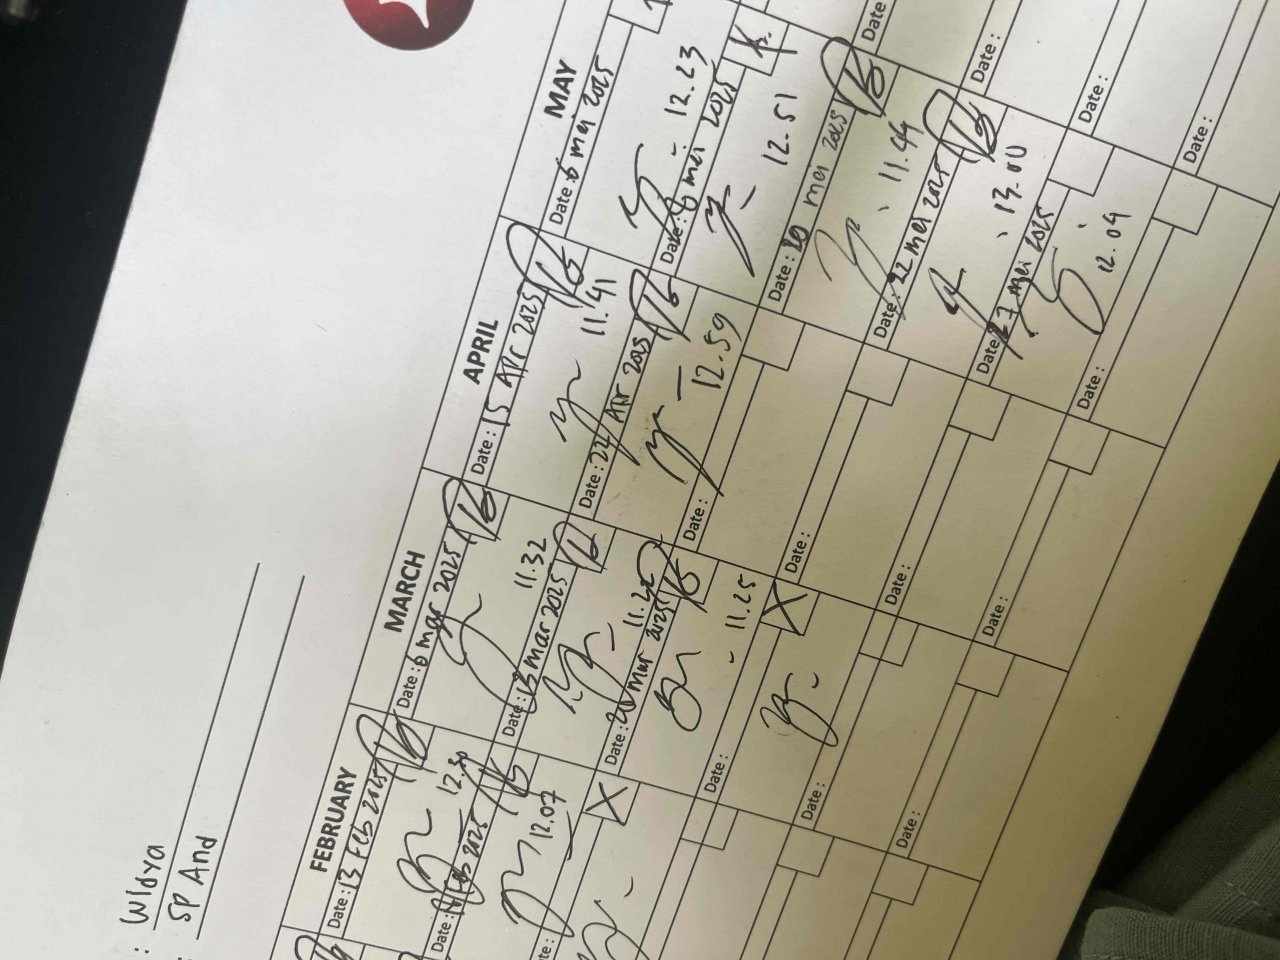 : Widya
: SP And
FEBRUARY
Date : 13 Feb 2025
12.30
Date : Feb 2025
12.07
MARCH
Date : 6 mar 2025
11.32
Date : 13 mar 2025
11.22
Date : 20 mar 2025
11.25
Date :
Date :
Date :
APRIL
Date : 15 Apr 2025
11.41
Date : 22 Apr 2025
12.59
Date :
Date :
Date :
Date :
MAY
Date : 6 mei 2025
12.23
Date : 8 mei 2025
12.51
Date : 20 mei 2025
11.44
Date : 22 mei 2025
13.00
Date : 27 mei 2025
12.04
Date :
Date
Date :
Date :
Date :